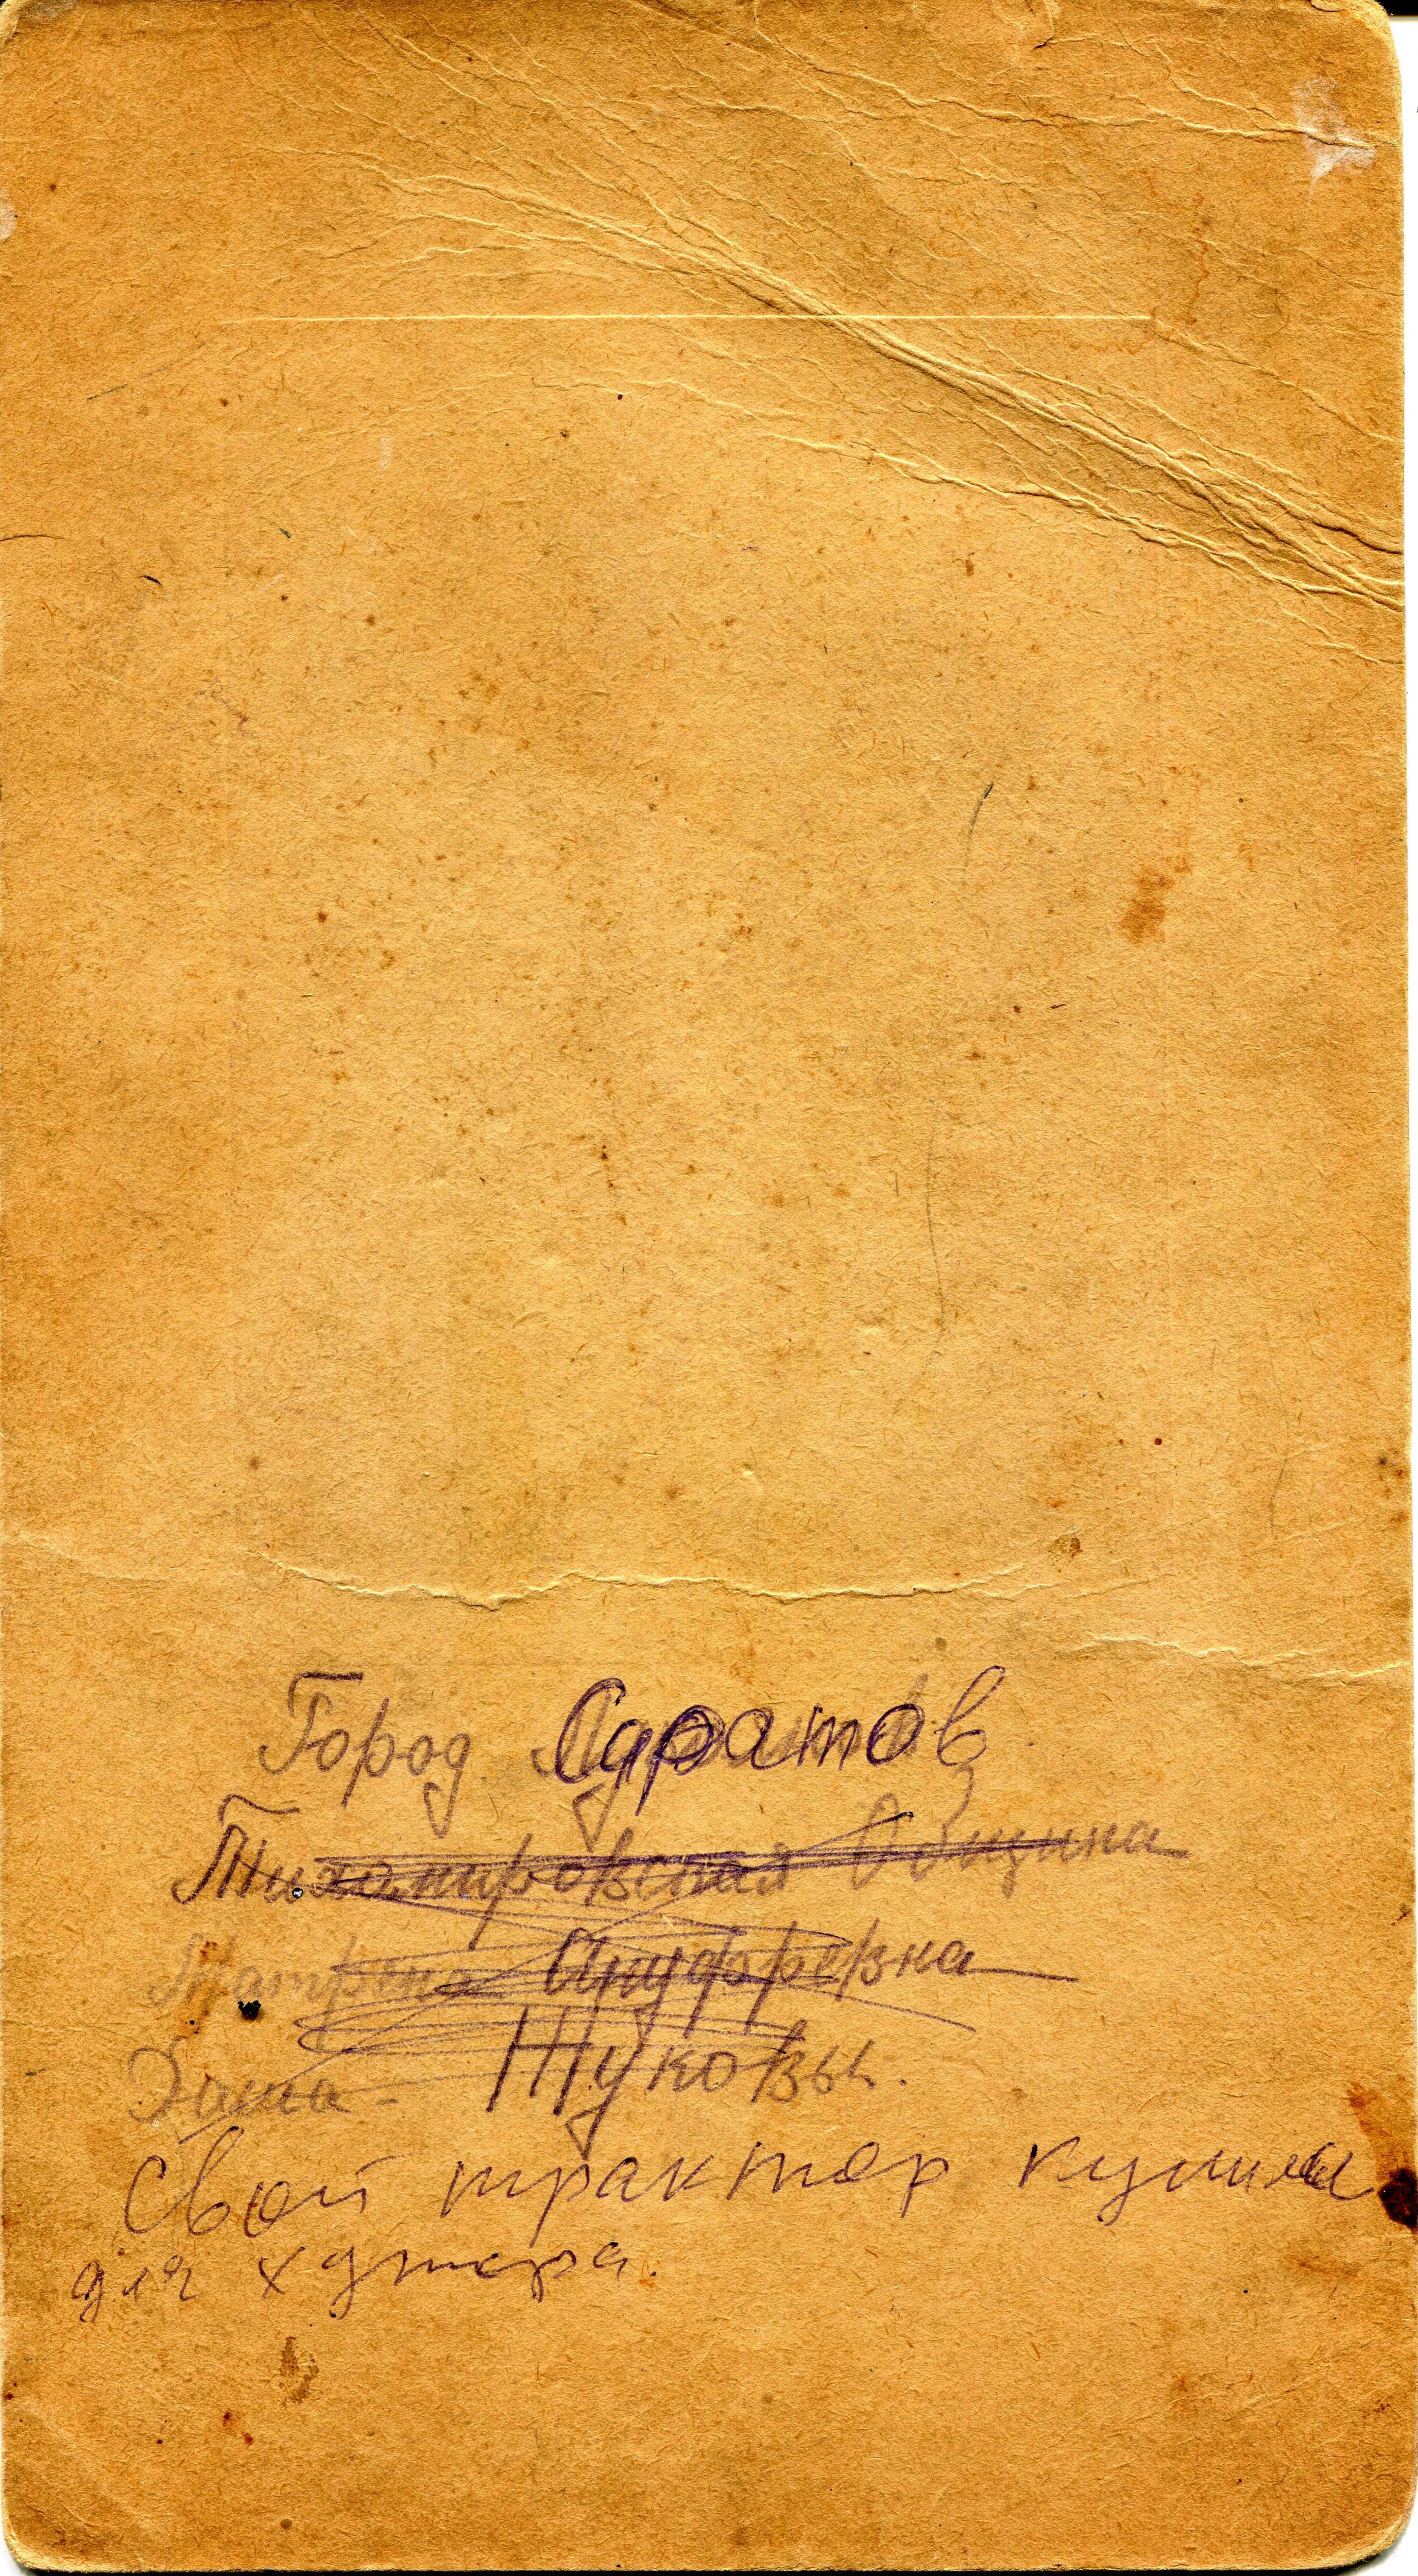 Город Саратов
Тихомировская Община
Матрена Ануфревна
Жуковы.
Свой трактор купили
для хутора.